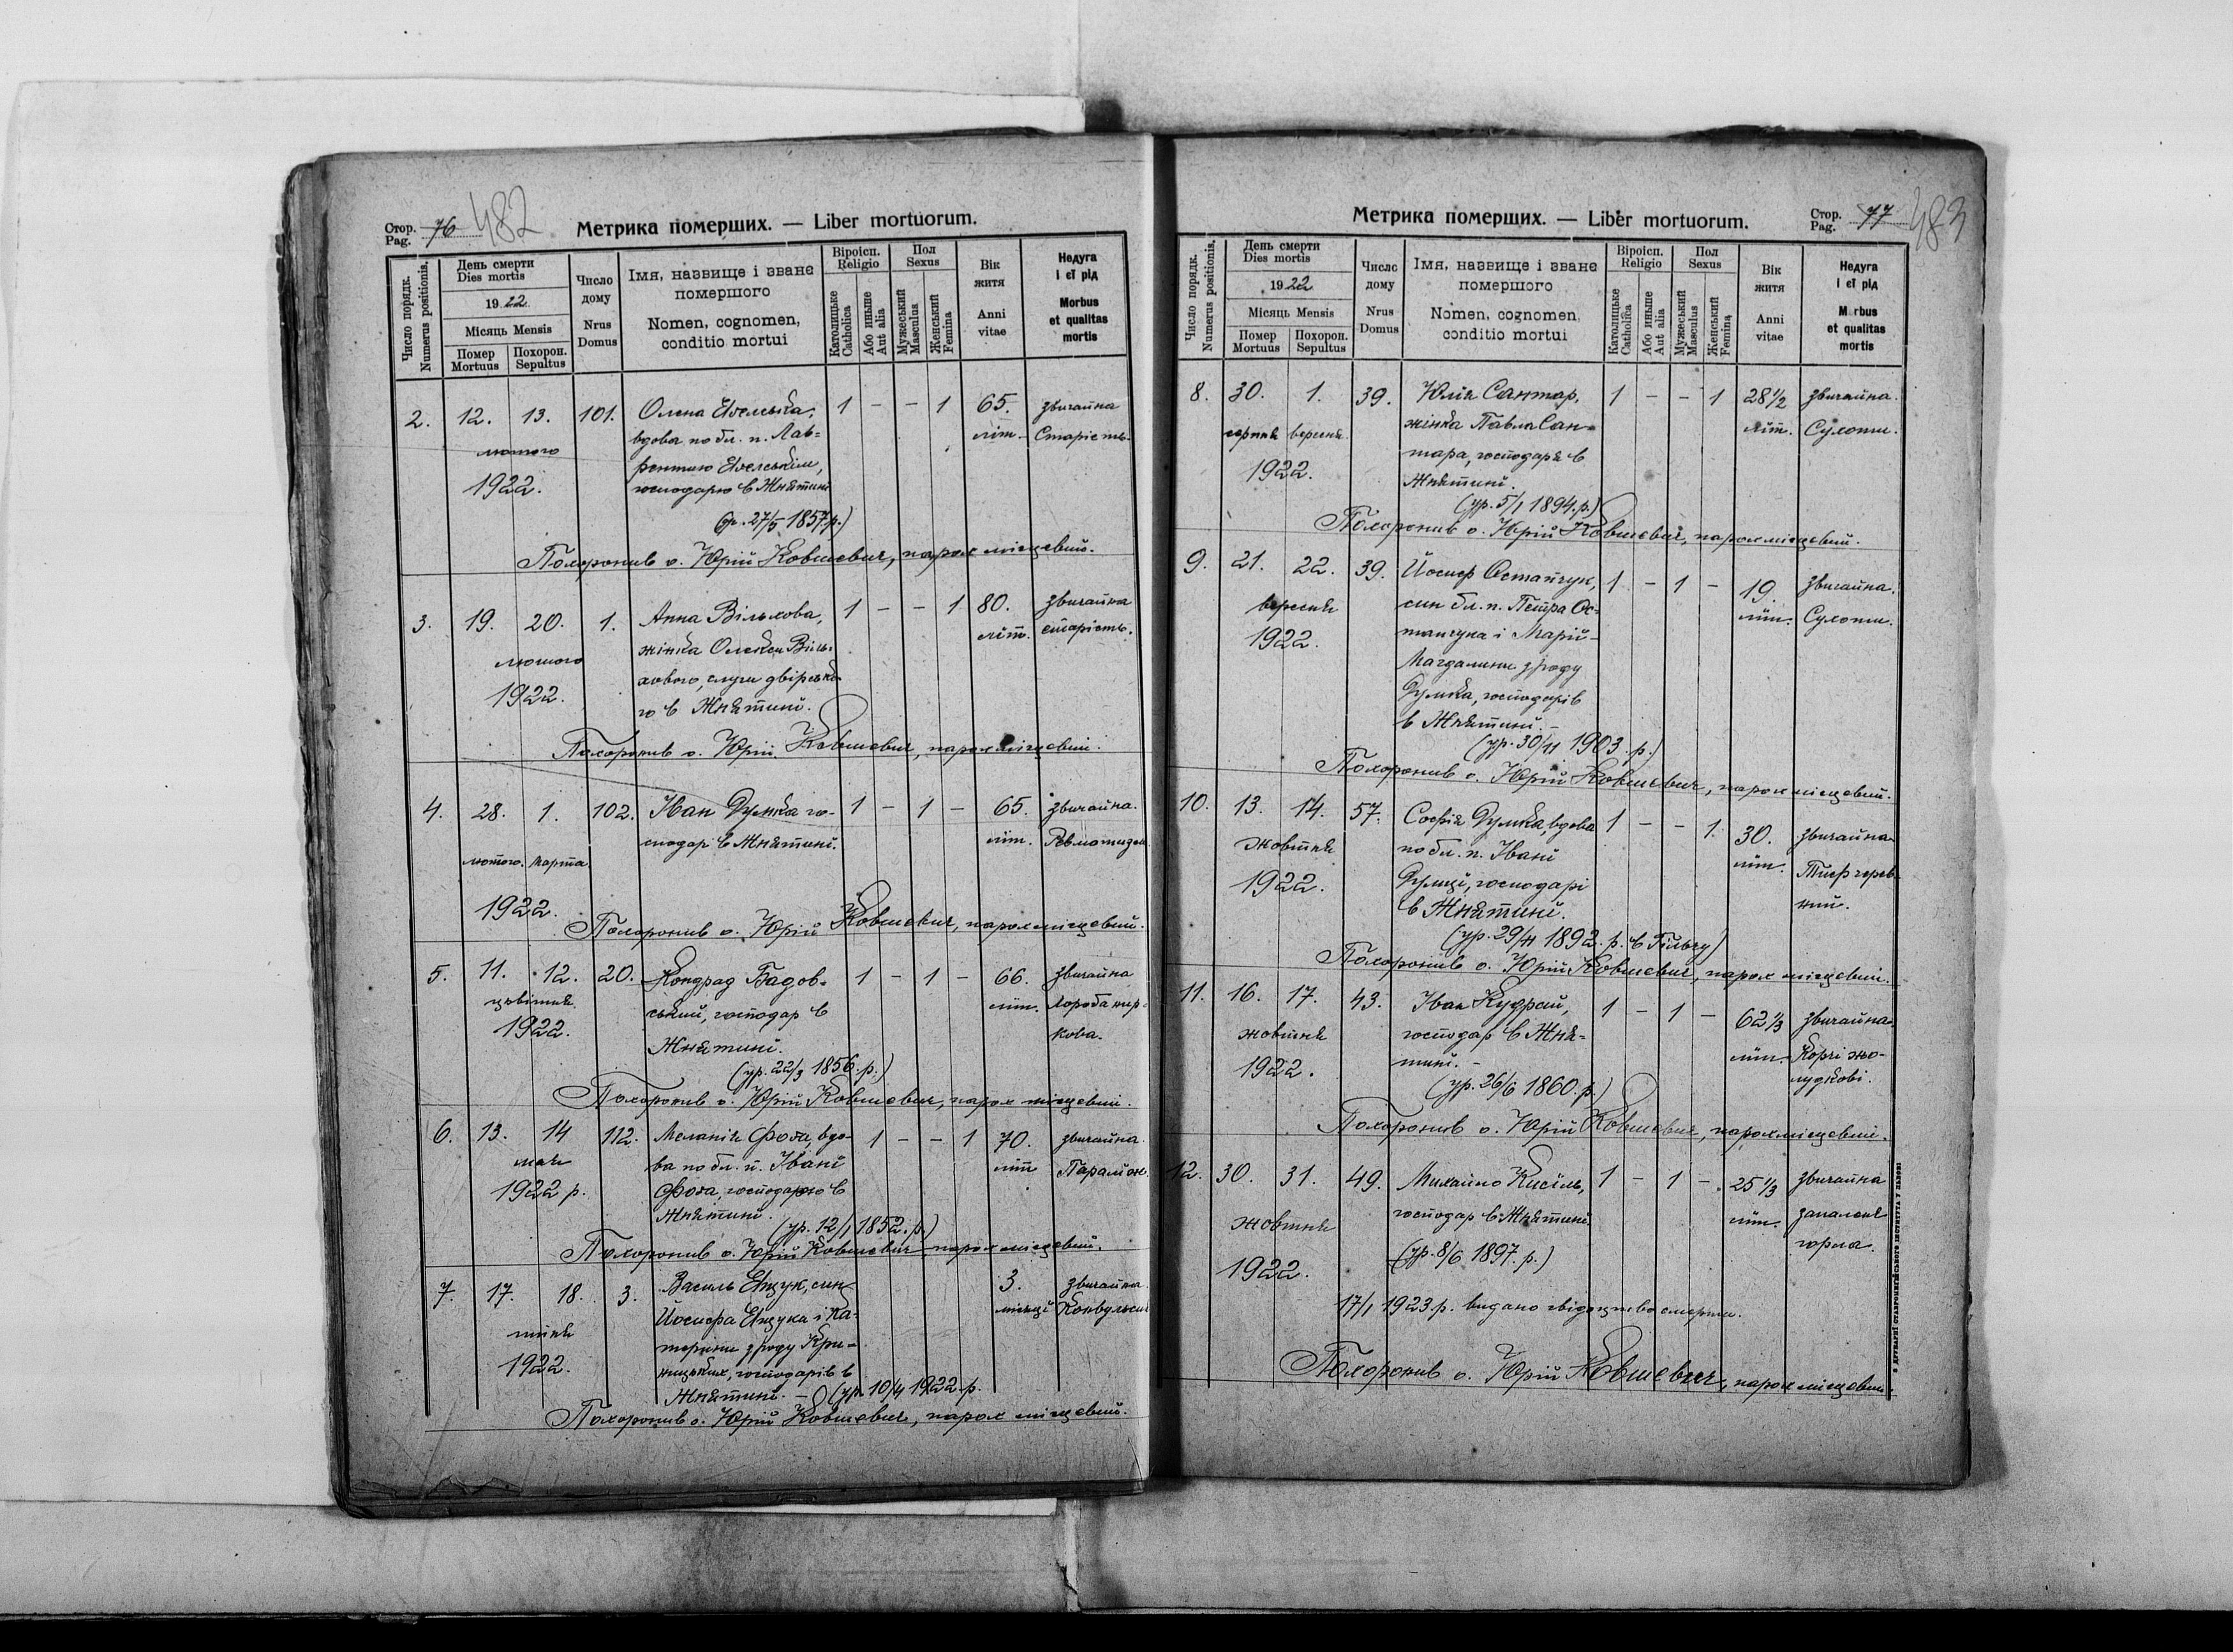 Стор. 76 482
Pag.
Метрика померших. — Liber mortuorum.
Число порядк.
Numerus positionis.
День смерти
Dies mortis
1922.
Місяць Mensis
Помер
Mortuus
Похорон.
Sepultus
Число
дому
Nrus
Domus
Імя, назвище і зване
помершого
Nomen, cognomen,
conditio mortui
Віроісп.
Religio
Католицьке
Catholica
Або иньше
Aut alia
Пол
Sexus
Мужеський
Masculus
Женський
Femina
Вік
житя
Anni
vitae
Недуга
і єї рід
Morbus
et qualitas
mortis
2. 12. 13. 101. Олена
1 - - 1 65. звичайна
вдова по бл. п. Лав-
літ. Старість.
лютого
рентию
1922. господарю в Жнятині
(ур. 27/5 1857.р.)
Похоронив о. Юрій Ковшевич, парох місцевий.
3. 19. 20. 1. Анна Вільхова, 1 - - 1 80. звичайна
жінка Олекси Віль-
літ. старість.
лютого
хового, слуги двірсько-
1922. го в Жнятині.
Похоронив о. Юрій Ковшевич, парох місцевий.
4. 28. 1. 102. Іван Думка го- 1 - 1 - 65. звичайна.
сподар в Жнятині. літ. Ревматизм
лютого. марта
1922.
Похоронив о. Юрій Ковшевич, парох місцевий.
5. 11. 12. 20. Кондрад Бадов- 1 - 1 - 66. звичайна
цвітня ський, господар в літ. хороба нир-
1922. Жнятині. кова.
(ур. 22/3 1856.р.)
Похоронив о. Юрій Ковшевич, парох місцевий.
6. 13. 14 112. Меланія Фоза, вдо- 1 - - 1 70. звичайна
мая ва по бл. п. Івані літ
1922 р. Фоза, господарю в
Жнятині. (ур. 12/1 1852.р.)
Похоронив о. Юрій Ковшевич, парох місцевий.
7. 17. 18. 3. Василь Ящук, син 3. звичайна
Йосифа Ящука і Ка- місяці Конвульсии
липня терини з роду Кри-
1922. ницьких, господарів в
Жнятині. - (ур. 10/4 1922.р.
Похоронив о. Юрій Ковшевич, парох місцевий.
Метрика померших. — Liber mortuorum.
Стор. 77 483
Pag.
Число порядк.
Numerus positionis.
День смерти
Dies mortis
1922
Місяць Mensis
Помер
Mortuus
Похорон.
Sepultus
Число
дому
Nrus
Domus
Імя, назвище і зване
помершого
Nomen, cognomen,
conditio mortui
Віроісп.
Religio
Католицьке
Catholica
Або иньше
Aut alia
Пол
Sexus
Мужеський
Masculus
Женський
Femina
Вік
житя
Anni
vitae
Недуга
і єї рід
Morbus
et qualitas
mortis
8. 30. 1. 39. Юлія Сантар, 1 - - 1 28½ звичайна.
серпня вересня. жінка Павла Сан- літ. Сухоти.
тара, господаря в
1922. Жнятині.
(ур. 5/1 1894.р.)
Похоронив о. Юрій Ковшевич, парох місцевий.
9. 21. 22. 39. Йосиф Остапчук, 1 - 1 - 19. звичайна.
вересня син бл. п. Петра Ос- літ. Сухоти.
1922. тапчука і Марії-
Магдалини з роду
Думка, господарів
в Жнятині. -
(ур. 30/11 1903.р.)
Похоронив о. Юрій Ковшевич, парох місцевий.
10. 13. 14. 57. Софія Думка, вдова 1 - - 1. 30. звичайна
жовтня по бл. п. Івані літ. Тиф черев-
1922. Думці, господарі ний.
в Жнятині.
(ур. 29/11 1892.р. в Гільчу)
Похоронив о. Юрій Ковшевич, парох місцевий.
11. 16. 17. 43. Іван Кудрай, 1 - 1 - 62⅓ звичайна.
жовтня господар в Жня- літ. Корчі жо-
1922. тині. - лудкові.
(ур. 26/6 1860.р.)
Похоронив о. Юрій Ковшевич, парох місцевий.
12. 30. 31. 49. Михайло Кисіль, 1 - 1 - 25⅓ звичайна
жовтня господар в Жнятині літ. запаленя
(ур. 8/6 1897.р.) горла.
1922.
17/1 1923.р. видано свідоцтво смерти.
Похоронив о. Юрій Ковшевич, парох місцевий.
З ДРУКАРНІ СТАВРОПИГІЙСЬКОГО ІНСТИТУТА У ЛЬВОВІ